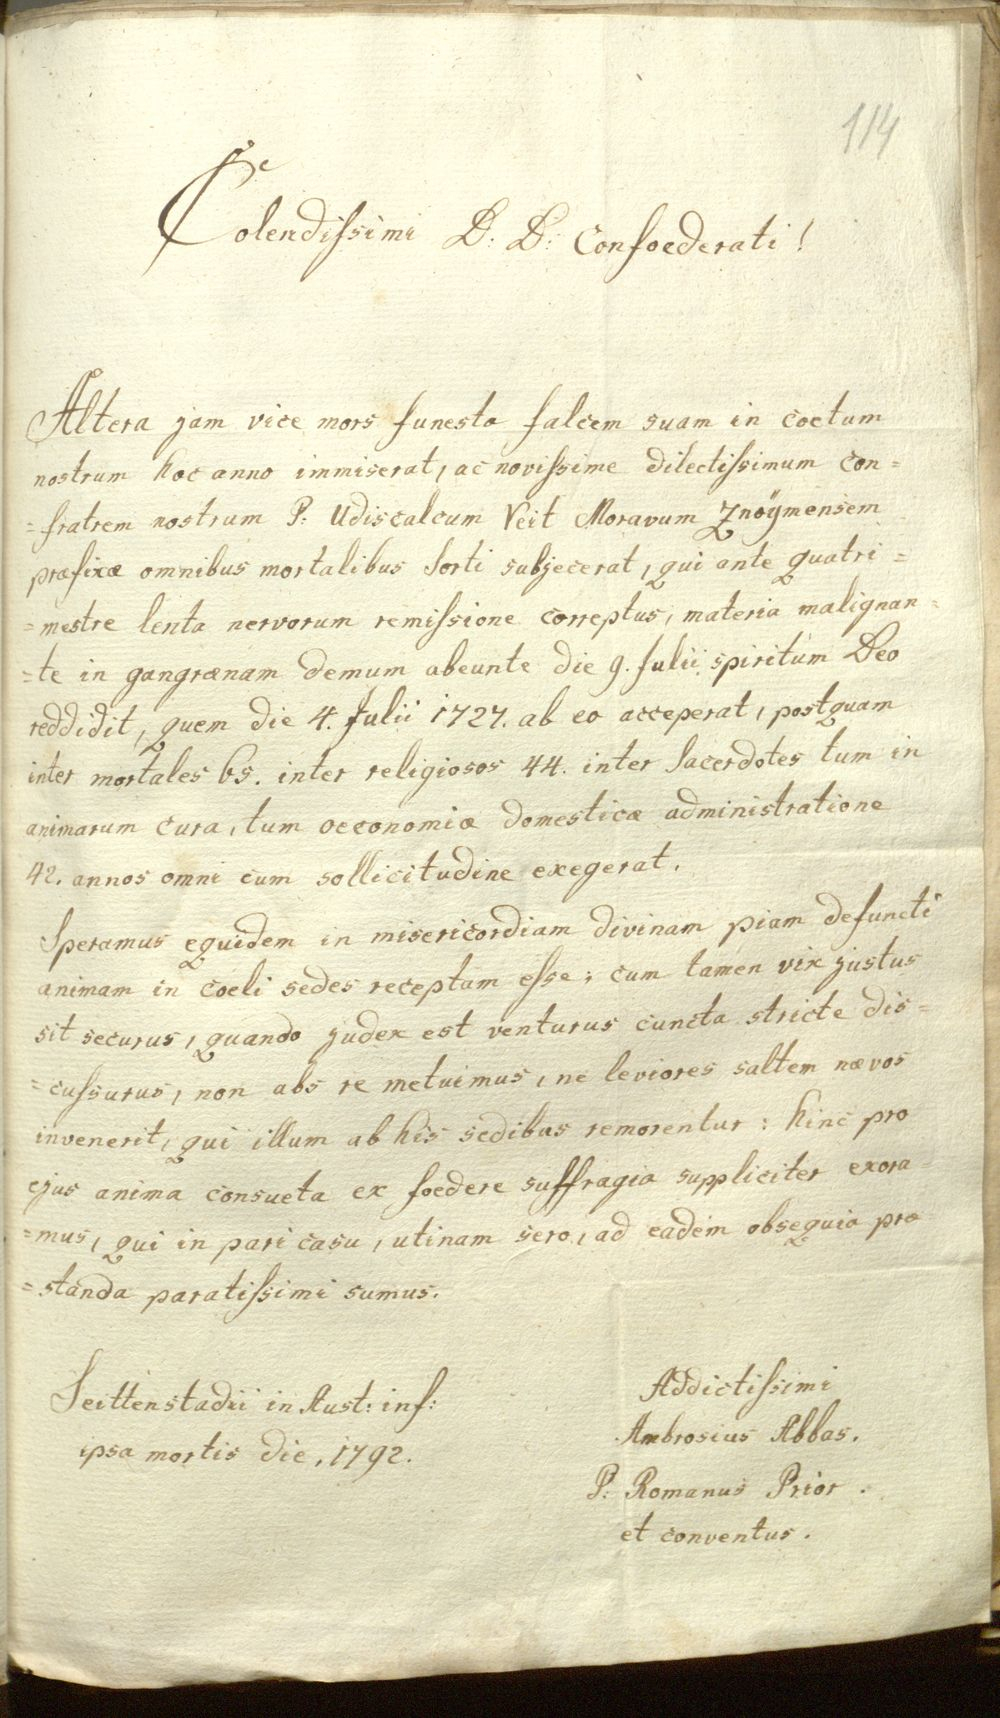 114
Colendissimi D: D: Confoederati!
Altera jam vice mors funesta falcem suam in coetum
nostrum hoc anno immiserat, ac novissime dilectissimum con=
=fratrem nostrum P: Udiscalcum Veit Moravum Znoÿmensem
præfixæ omnibus mortalibus sorti subjecerat, qui ante quatri=
=mestre lenta nervorum remissione correptus, materia malignan=
=te in gangrænam demum abeunte die 9. Julii spiritum Deo
reddidit, quem die 4. Julii 1727. ab eo acceperat, postquam
inter mortales 65. inter religiosos 44. inter Sacerdotes tum in
animarum cura, tum oeconomiæ domesticæ administratione
42. annos omni cum sollicitudine exegerat.
Speramus equidem in misericordiam divinam piam defuncti
animam in coeli sedes receptam esse; cum tamen vix justus
sit securus, quando judex est venturus cuncta stricte dis=
=cussurus, non abs re metuimus, ne leviores saltem nævos
invenerit, qui illum ab his sedibus remorentur: hinc pro
ejus anima consueta ex foedere suffragia suppliciter exora=
=mus, qui in pari casu, utinam sero, ad eadem obsequia præ
=standa paratissimi sumus.
Seittenstadii in Aust: inf:
ipsa mortis die, 1792.
Addictissimi
Ambrosius Abbas.
P: Romanus Prior.
et conventus.